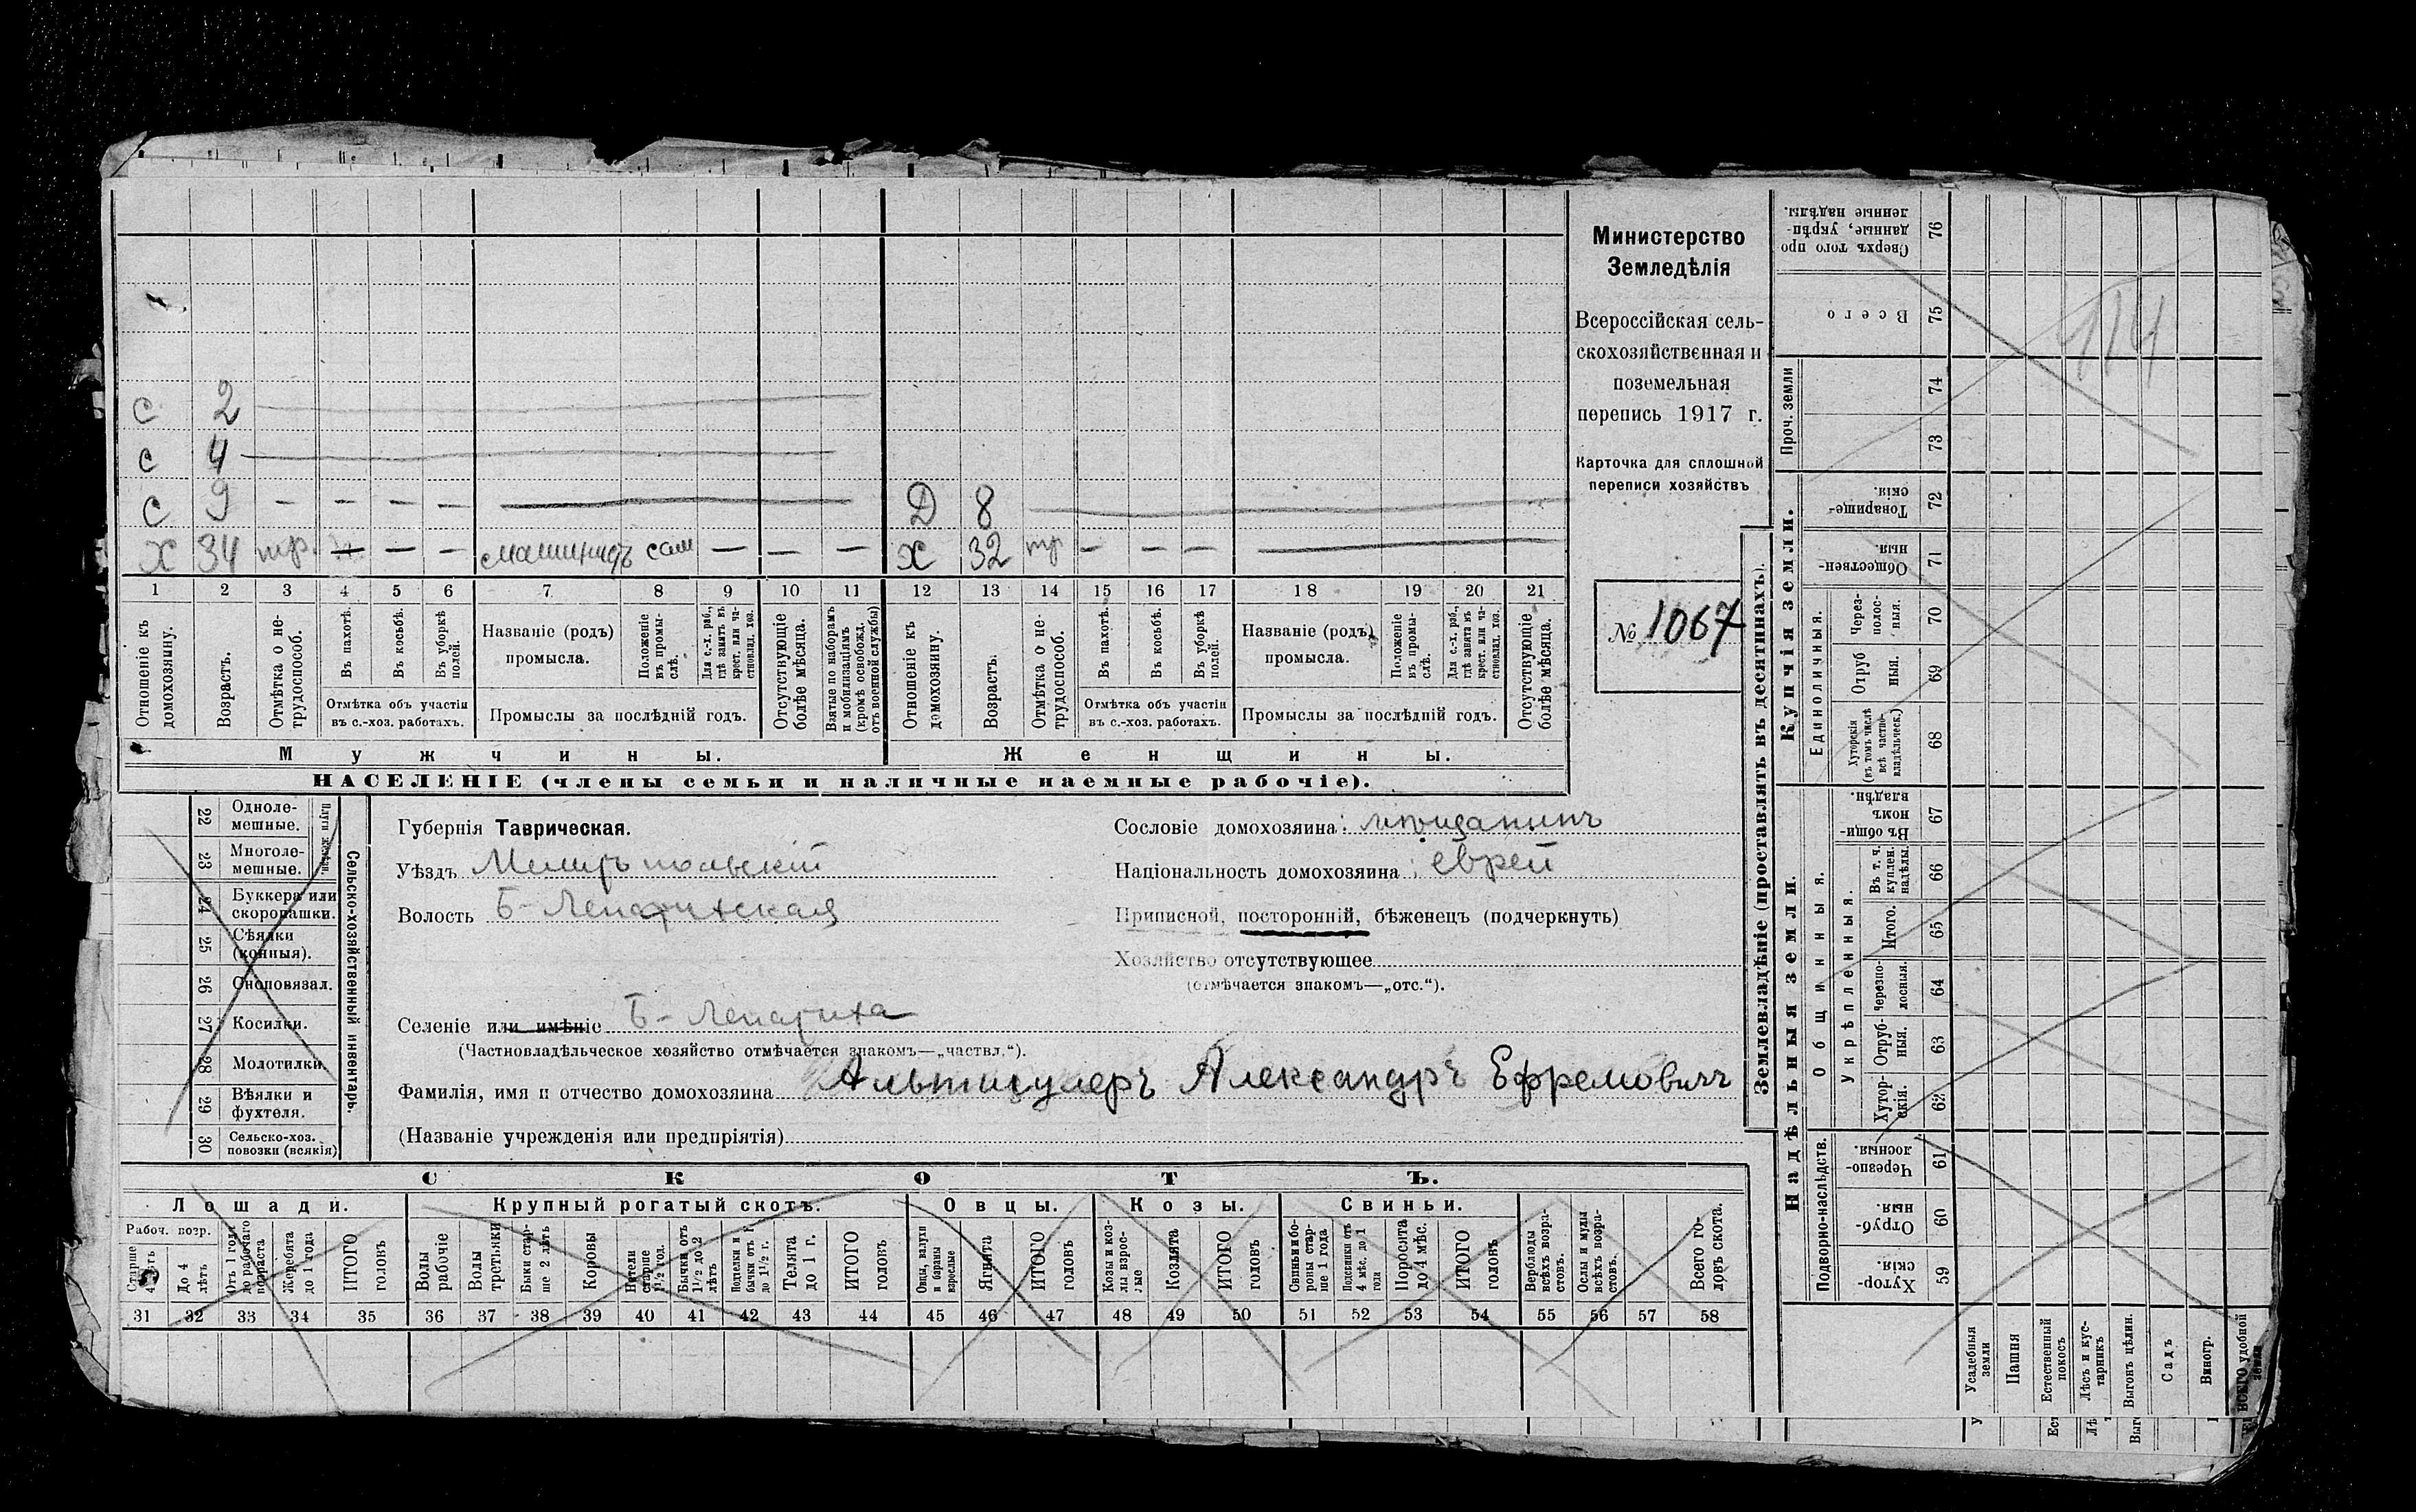 с 2
с 4
с 9 — — — — Д 8
х 34 тр. — — — сам — — — х 32 тр — — —
1 2 3 4 5 6 7 8 9 10 11 12 13 14 15 16 17 18 19 20 21
Отношеніе къ домохозяину.
Возрастъ.
Отмѣтка о не-трудоспособ.
Въ пахотѣ.
Въ косьбѣ.
Въ уборкѣ полей.
Отмѣтка объ участіи въ с.-хоз. работахъ.
Названіе (родъ) промысла.
Положеніе въ промы-слѣ.
Для с.-х. раб., гдѣ занятъ въ крест. или ча-стновлад. хоз.
Промыслы за послѣдній годъ.
Отсутствующіе болѣе мѣсяца.
Взятые по наборамъ и мобилизаціямъ (кромѣ освобожд. отъ военной службы)
Отношеніе къ домохозяину.
Возрастъ.
Отмѣтка о не-трудоспособ.
Въ пахотѣ.
Въ косьбѣ.
Въ уборкѣ полей.
Отмѣтка объ участіи въ с.-хоз. работахъ.
Названіе (родъ) промысла.
Положеніе въ промы-слѣ.
Для с.-х. раб., гдѣ занята въ крест. или ча-стновлад. хоз.
Промыслы за послѣдній годъ.
Отсутствующіе болѣе мѣсяца.
Мужчины. Женщины.
НАСЕЛЕНІЕ (члены семьи и наличные наемные рабочіе).
Министерство
Земледѣлія
Всероссійская сель-
скохозяйственная и
поземельная
перепись 1917 г.
Карточка для сплошной
переписи хозяйствъ
№ 1067
22 Одноле-мешные.
23 Многоле-мешные.
24 Буккера или скоропашки.
25 Сѣялки (конныя).
26 Сноповязал.
27 Косилки.
28 Молотилки.
29 Вѣялки и фухтеля.
30 Сельско-хоз. повозки (всякія)
Сельско-хозяйственный инвентарь.
Губернія Таврическая.
Уѣздъ Мелитопольскій
Волость Б-Лепатихская
Селеніе или имѣніе Б-Лепатиха
(Частновладѣльческое хозяйство отмѣчается знакомъ—„частвл.“).
Фамилія, имя и отчество домохозяина Альтшулеръ Александръ Ефремовичъ
(Названіе учрежденія или предпріятія)
Сословіе домохозяина: мѣщанинъ
Національность домохозяина: еврей
Приписной, посторонній, бѣженецъ (подчеркнуть)
Хозяйство отсутствующее
(отмѣчается знакомъ—„отс.“).
СКОТЪ.
Лошади. Крупный рогатый скотъ. Овцы. Козы. Свиньи.
Рабоч. возр.
Старше 4 лѣтъ
До 4 лѣтъ
Отъ 1 года до рабочаго возраста
Жеребята до 1 года
ИТОГО головъ
Волы рабочіе
Волы третьяки
Быки стар-ше 2 лѣтъ
Коровы
Нетели старше 1½ год.
Бычки отъ 1½ до 2 лѣтъ
Подтелки и бычки отъ 1 г. до 1½ г.
Телята до 1 г.
ИТОГО головъ
Овцы, валухи и бараны взрослые
Ягнята
ИТОГО головъ
Козы и коз-лы взрос-лые
Козлята
ИТОГО головъ
Свиньи и бо-ровы стар-ше 1 года
Подсвинки отъ 4 мѣс. до 1 года
Поросята до 4 мѣс.
ИТОГО головъ
Верблюды всѣхъ возра-стовъ.
Ослы и мулы всѣхъ возра-стовъ.
Всего го-ловъ скота.
31 32 33 34 35 36 37 38 39 40 41 42 43 44 45 46 47 48 49 50 51 52 53 54 55 56 57 58
Землевладѣніе (проставлять въ десятинахъ).
Сверхъ того про-данные, укрѣп-ленные надѣлы. 76
Всего 75
Проч. земли 74 73
Купчія земли.
Товарище-скія. 72
Обществен-ныя. 71
Единоличныя.
Через-полос-ныя. 70
Отруб-ныя. 69
Хуторскія (въ томъ числѣ всѣ частно-владѣльческ.) 68
Надѣльныя земли.
Въ общи-номъ владѣн. 67
Общинныя.
Укрѣпленныя.
Въ т. ч. куплен. надѣлы. 66
Итого. 65
Черезпо-лосныя. 64
Отруб-ныя. 63
Хутор-скія. 62
Подворно-наслѣдств.
Черезпо-лосныя. 61
Отруб-ныя. 60
Хутор-скія. 59
Усадебныя земли
Пашня
Естественный покосъ
Лѣсъ и кус-тарникъ
Выгонъ цѣлин.
Садъ
Виногр.
ВСЕГО удобной земли
114